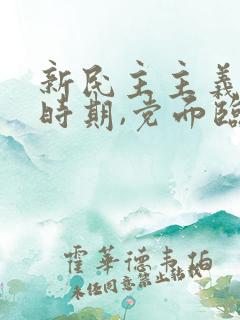 新民主主義
時期,党而臨
霍華德韋伯
未经同意禁止转载